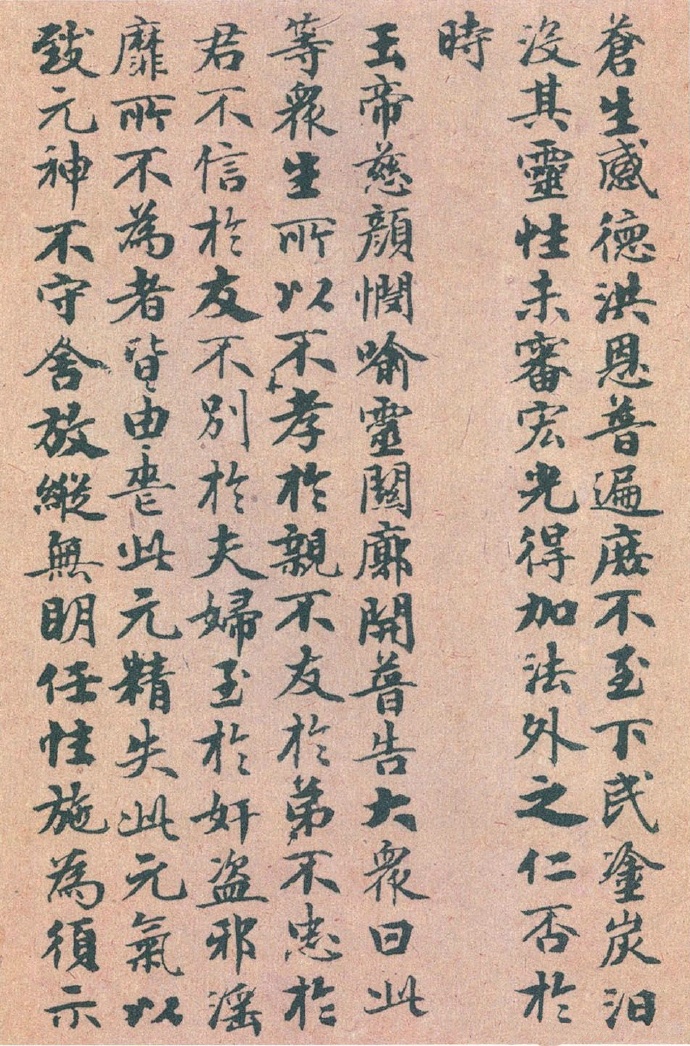 蒼生感德洪恩普遍不至下民塗炭汩
沒其靈性未審宏光得加法外之仁否於
時
玉帝慈顏憫喻靈關廓開普告大衆曰此
等衆生所以不孝於親不友於弟不忠於
君不信於友不別於夫婦至於奸盜邪淫
靡所不為者皆由喪此元精失此元氣以
致元神不守舍放縱無明任性施為須示